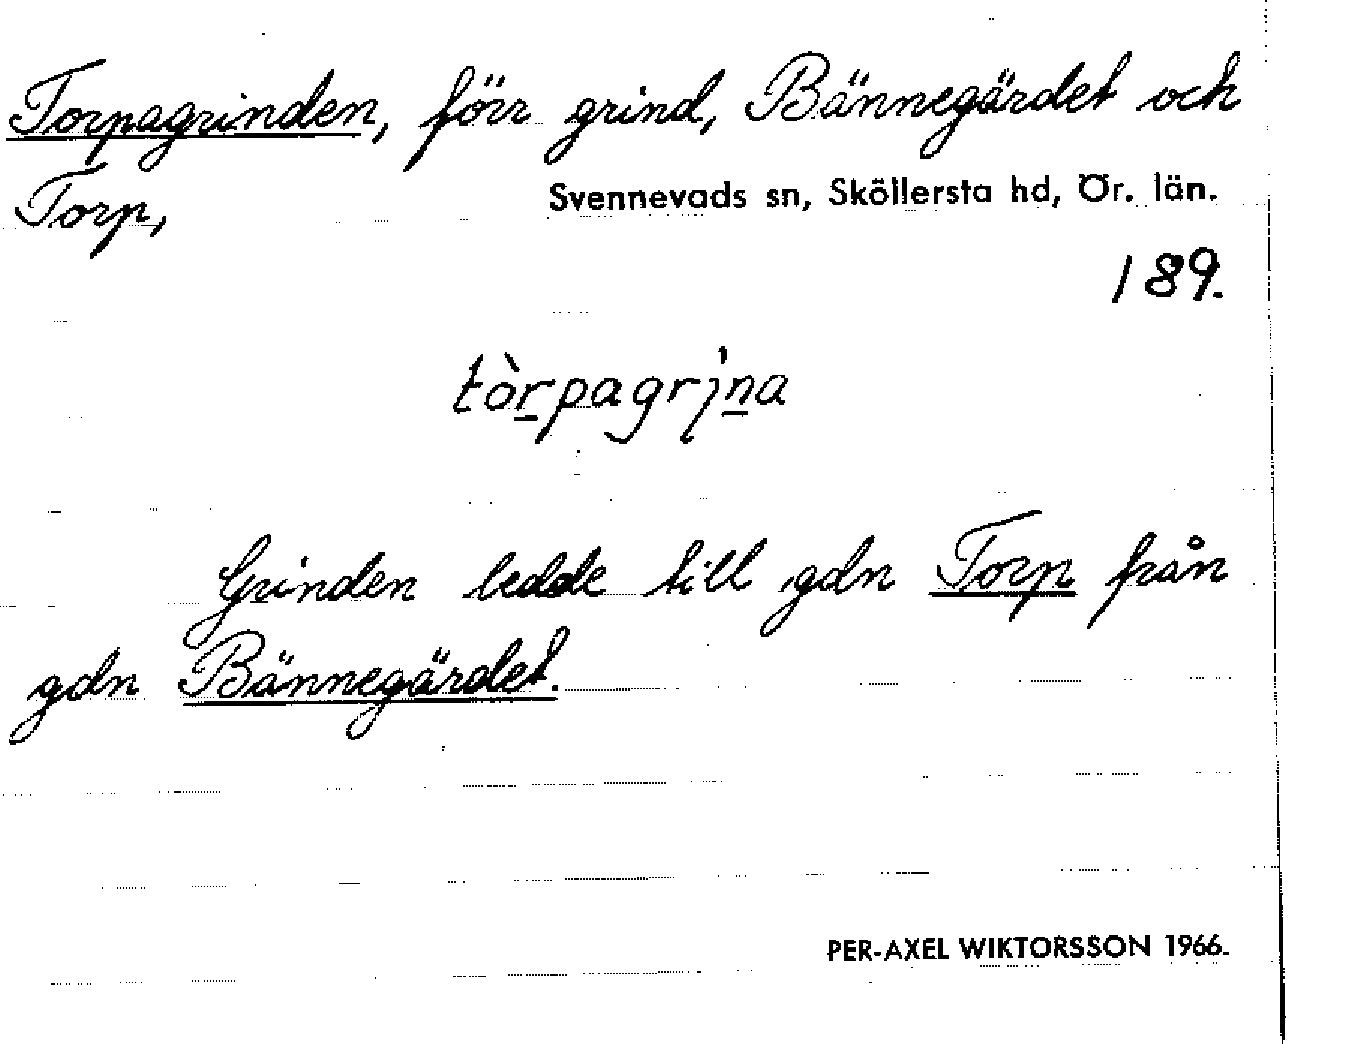 Torpagrinden, förr grind, Bännegärdet och
Torp,
Svennevads sn, Sköllersta hd, Ör. län.
189.
tòrpagrı̍na
Grinden ledde till gdn Torp från
gdn Bännegärdet.
PER-AXEL WIKTORSSON 1966.